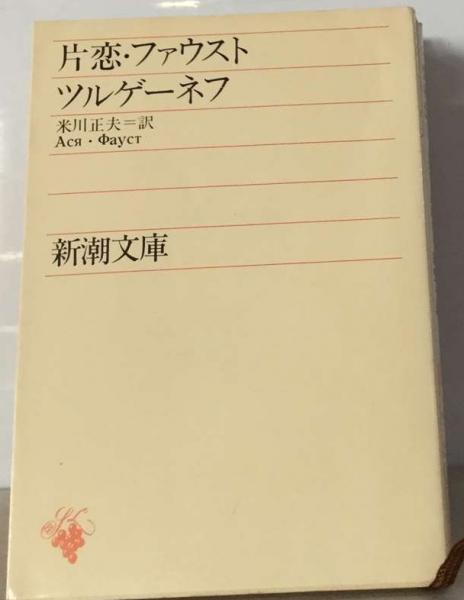 片恋・ファウスト
ツルゲーネフ
米川正夫＝訳
Ася・Фауст
新潮文庫